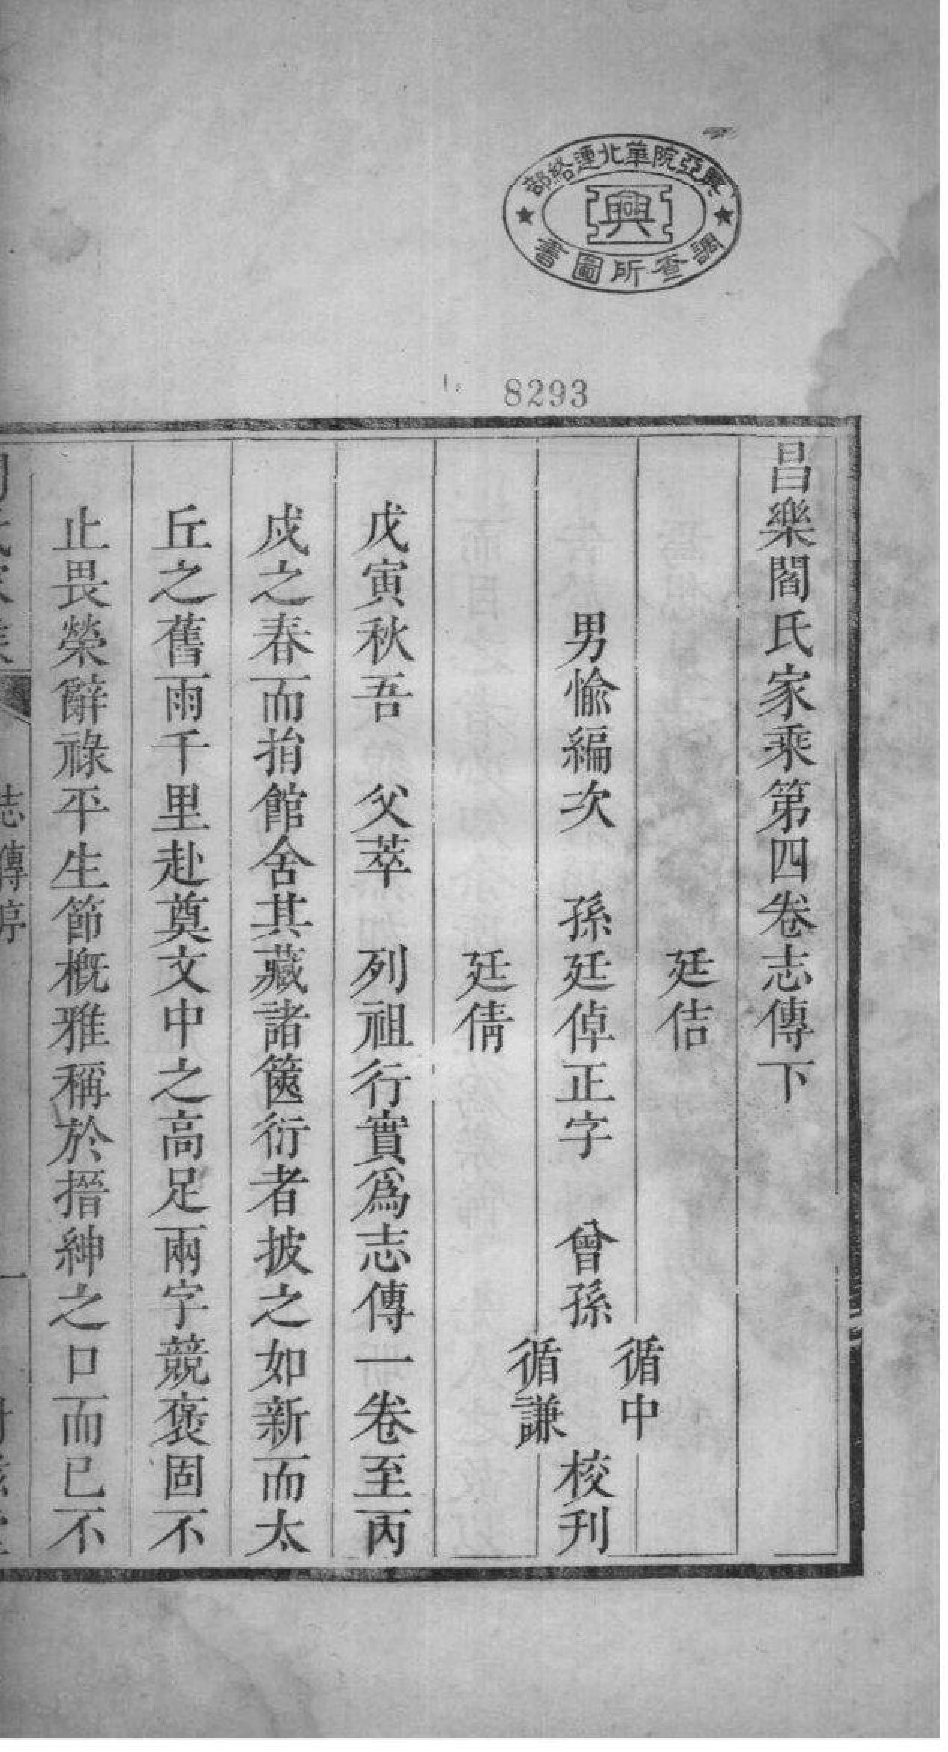 興亞院華北連絡部
興
調查所圖書
8293
昌樂閻氏家乘第四卷志傳下
廷佶
循中
男愉編次 孫廷倬正字 曾孫 校刊
廷倩
循謙
戊寅秋吾 父萃 列祖行實爲志傳一卷至丙
戍之春而捐館舍其藏諸篋衍者披之如新而太
丘之舊雨千里赴奠文中之高足兩字競褒固不
止畏榮辭祿平生節槪雅稱於搢紳之口而已不
志傳序
一